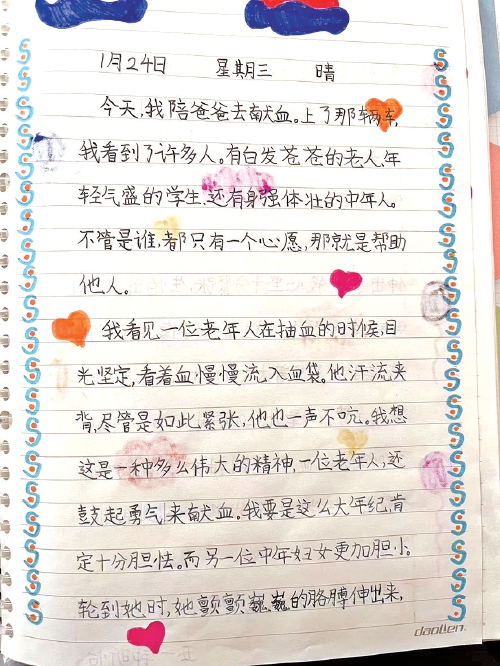 1月24日 星期三 晴
今天,我陪爸爸去献血。上了那辆车,
我看到了许多人。有白发苍苍的老人,年
轻气盛的学生,还有身强体壮的中年人。
不管是谁,都只有一个心愿,那就是帮助
他人。
我看见一位老年人在抽血的时候,目
光坚定,看着血慢慢流入血袋。他汗流夹
背,尽管是如此紧张,他也一声不吭。我想
这是一种多么伟大的精神,一位老年人,还
鼓起勇气来献血。我要是这么大年纪,肯
定十分胆怯。而另一位中年妇女更加胆小。
轮到她时,她颤颤巍巍的胳膊伸出来,